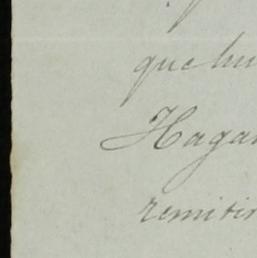 que hu
Hagan
remitir